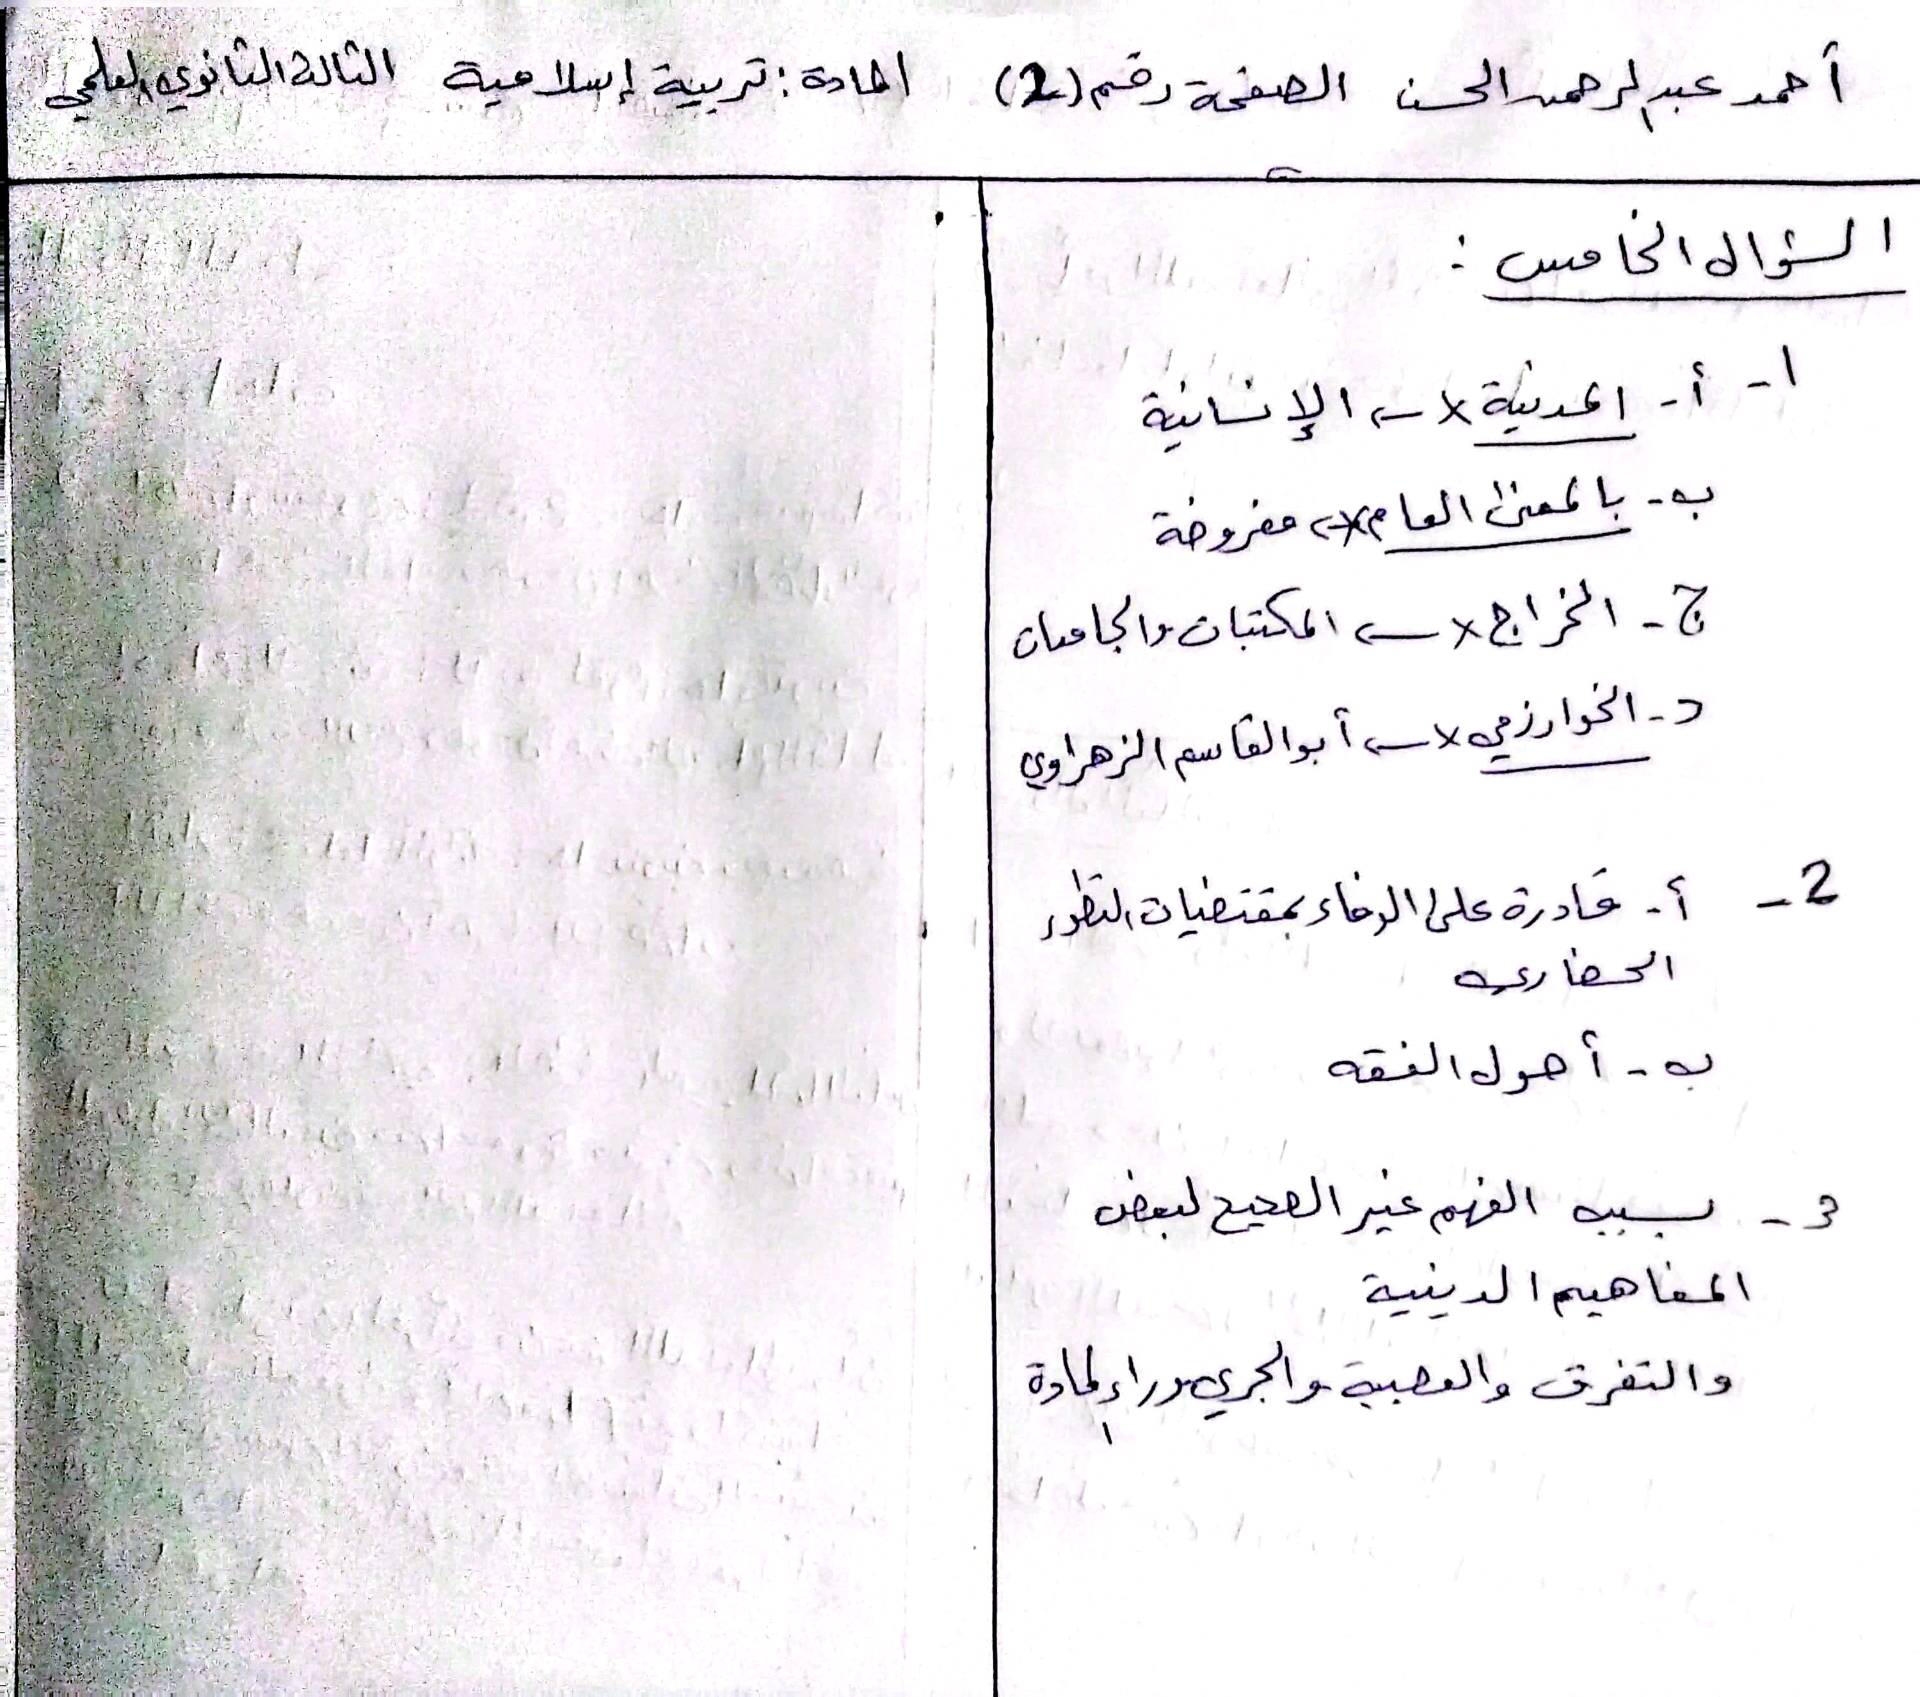 أحمد عبد الرحمن الحسن الصفحة رقم (2) المادة: تربية إسلامية الثالث الثانوي العلمي
السؤال الخامس :
1- أ- المدنية × ← الإنسانية
ب- بالمعنى العام × ← مفروضة
ج- الخراج × ← المكتبات والجامعات
د- الخوارزمي × ← أبو القاسم الزهراوي
2- أ- قادرة على الوفاء بمقتضيات التطور
الحضاري
ب- أصول الفقه
3- بسبب الفهم غير الصحيح لبعض
المفاهيم الدينية
والتفرق والعصبية والجري وراء المادة